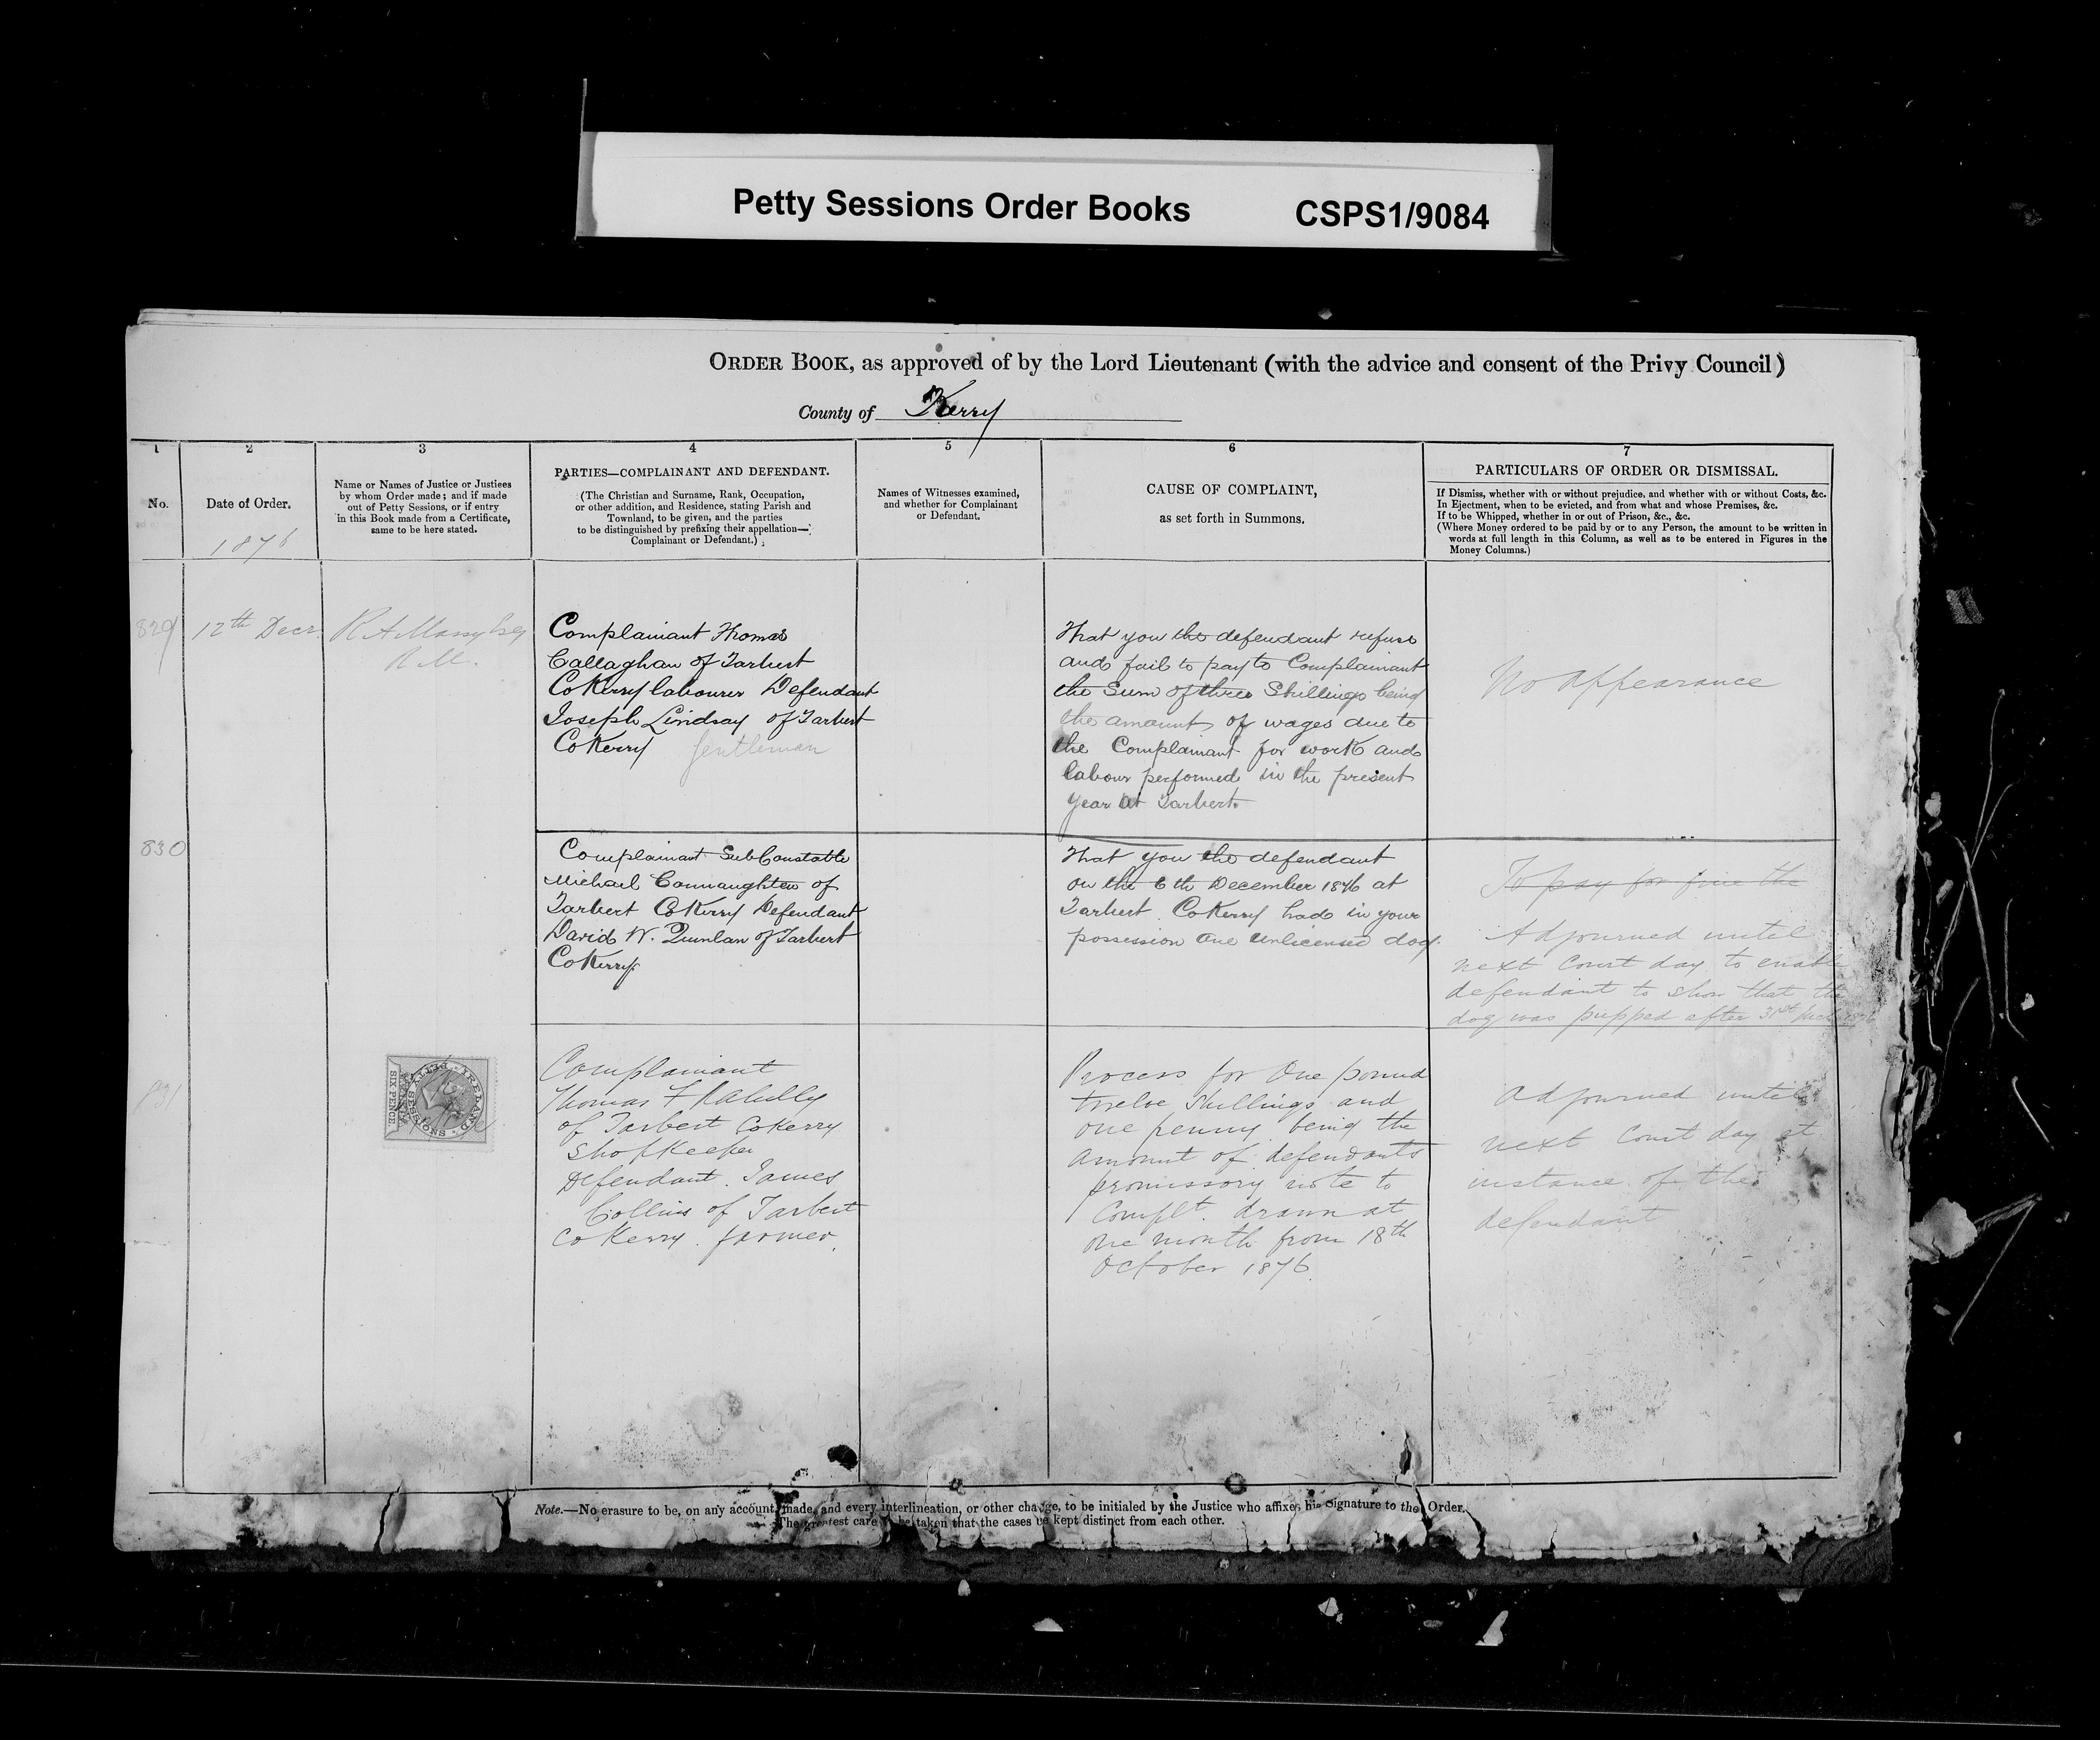 Petty Sessions Order Books CSPS1/9084
ORDER BOOK, as approved of by the Lord Lieutenant (with the advice and consent of the Privy Council)
County of Kerry
1 2 3 4 5 6 7
No.
Date of Order.
1876
Name or Names of Justice or Justices
by whom Order made; and if made
out of Petty Sessions, or if entry
in this Book made from a Certificate,
same to be here stated.
PARTIES—COMPLAINANT AND DEFENDANT.
(The Christian and Surname, Rank, Occupation,
or other addition, and Residence, stating Parish and
Townland, to be given, and the parties
to be distinguished by prefixing their appellation—
Complainant or Defendant.)
Names of Witnesses examined,
and whether for Complainant
or Defendant.
CAUSE OF COMPLAINT,
as set forth in Summons.
PARTICULARS OF ORDER OR DISMISSAL.
If Dismiss, whether with or without prejudice, and whether with or without Costs, &c.
In Ejectment, when to be evicted, and from what and whose Premises, &c.
If to be Whipped, whether in or out of Prison, &c., &c.
(Where Money ordered to be paid by or to any Person, the amount to be written in
words at full length in this Column, as well as to be entered in Figures in the
Money Columns.)
829
12th Decr.
R A Massy Esq
R.M.
Complainant Thomas
Callaghan of Tarbert
Co Kerry labourer Defendant
Joseph Lindsay of Tarbert
Co Kerry gentleman
That you the defendant refuse
and fail to pay to Complainant
the Sum of three Shillings being
the amount of wages due to
the Complainant for work and
labour performed in the present
year at Tarbert.
No appearance
830
Complainant Sub Constable
Michael Connaughten of
Tarbert Co Kerry Defendant
David W. Quinlan of Tarbert
Co Kerry.
That you the defendant
on the 6th December 1876 at
Tarbert Co Kerry had in your
possession one unlicensed dog.
To pay for fine the
Adjourned until
next Court day to enable
defendant to show that the
dog was pupped after 31st
831
PETTY SESSIONS IRELAND
SIX PENCE
Complainant
Thomas F
of Tarbert Co Kerry
Shopkeeper
Defendant James
Collins of Tarbert
Co Kerry farmer.
Process for One pound
twelve Shillings and
one penny being the
amount of defendants
promissory note to
Complt. drawn at
one month from 18th
October 1876.
Adjourned until
next Court day at
instance of the
defendant
Note.—No erasure to be, on any account, made, and every interlineation, or other change, to be initialed by the Justice who affixes his Signature to the Order.
The greatest care be taken that the cases be kept distinct from each other.